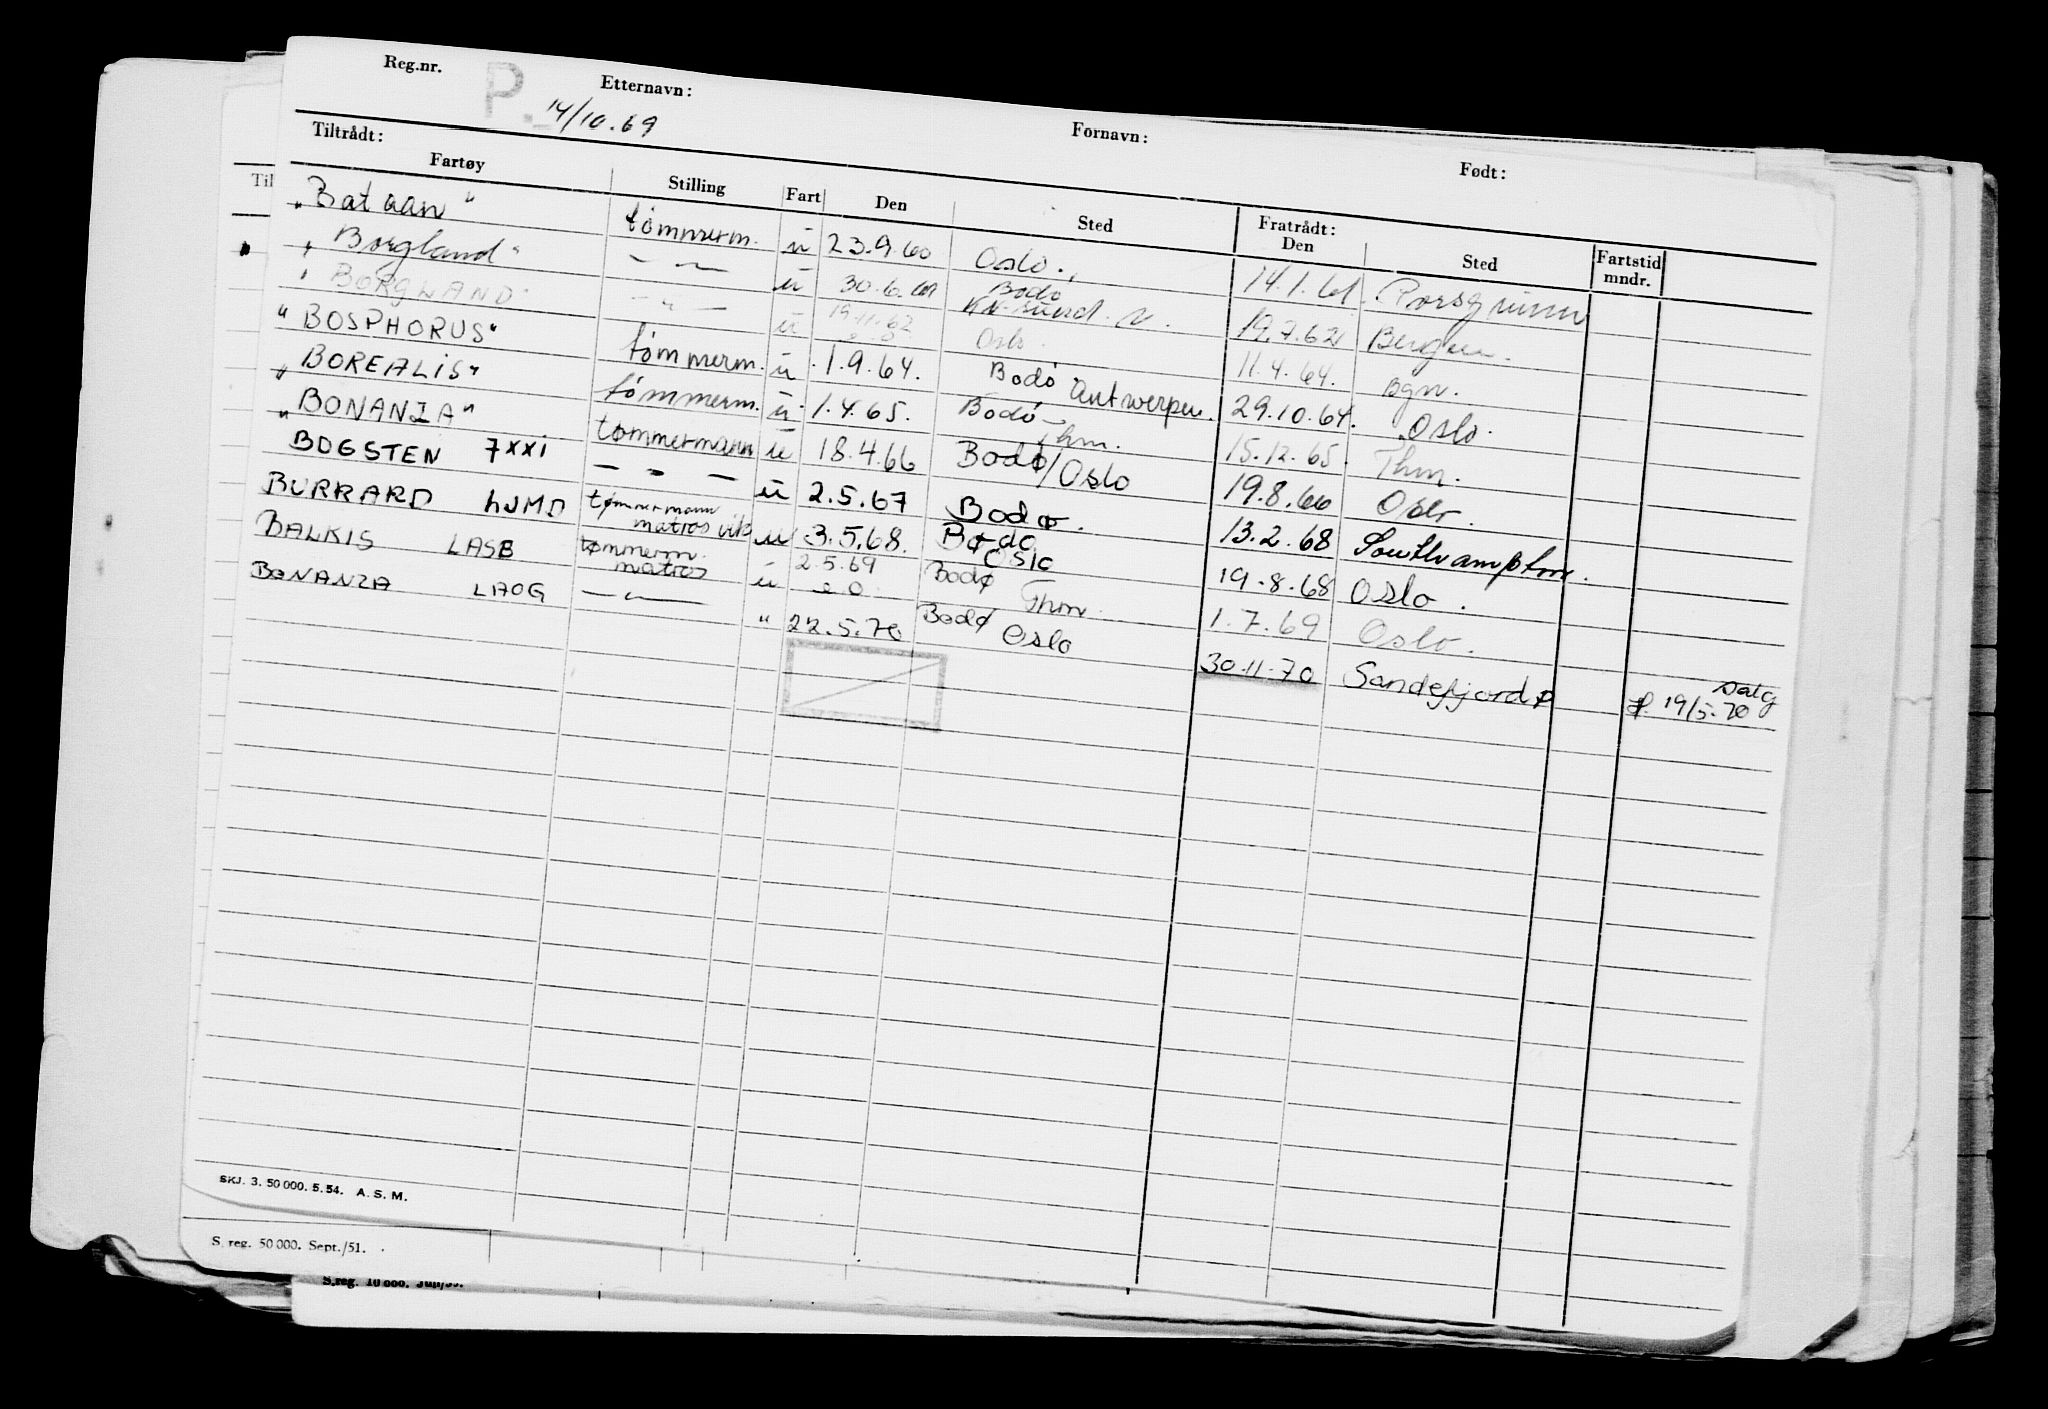 Reg.nr. P. Etternavn: Fornavn: Født:
14/10.69
Tiltrådt: Fratrådt:
Fartøy Stilling Fart Den Sted Den Sted Fartstid mndr.
"Bataan" tømmerm. u 23.9.60 Oslo. 14.1.61. Porsgrunn
"Borgland" — " — u 30.6.61 Bodø Kr.sund. N. 19.7.62 Bergen.
"BORGLAND" — " — u 19.11.62 Oslo. 11.4.64. Bgn.
"BOSPHORUS" tømmerm. u 1.9.64. Bodø Antwerpen. 29.10.64. Oslo.
"BOREALIS" tømmerm. u 1.4.65. Bodø - Thm. 15.12.65. Thm.
"BONANZA" tømmermann u 18.4.66 Bodø/Oslo 19.8.66 Oslo.
BOGSTEN 7XXI — " — u 2.5.67 Bodø. 13.2.68 Southampton.
BURRARD LJMD tømmermann matros vik u 3.5.68. Bodø Oslo 19.8.68 Oslo.
BALKIS LASE tømmerm. matros u 2.5.69 Bodø Thm. 1.7.69 Oslo.
BONANZA LAOG — " — " 22.5.70 Bodø Oslo 30.11.70 Sandefjord
salg
19/5.70
SKJ. 3. 50 000. 5. 54. A. S. M.
S. reg. 50 000. Sept./51.
S. reg. 10 000.
Til